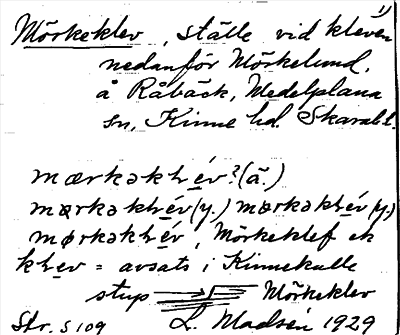 1)
Mörkeklev, ställe vid kleven
nedanför Mörkelund,
å Råbäck, Medelplana
sn, Kinne hd. Skarab. l.
mærkəkłév? (ä.)
mærkəkłév (y.) mærkəkłév (y.)
mørkəkłév, Mörkeklef ek
kłev = avsats i Kinnekulle
stup Mörkeklev
Str. S 109 L. Madsén 1929